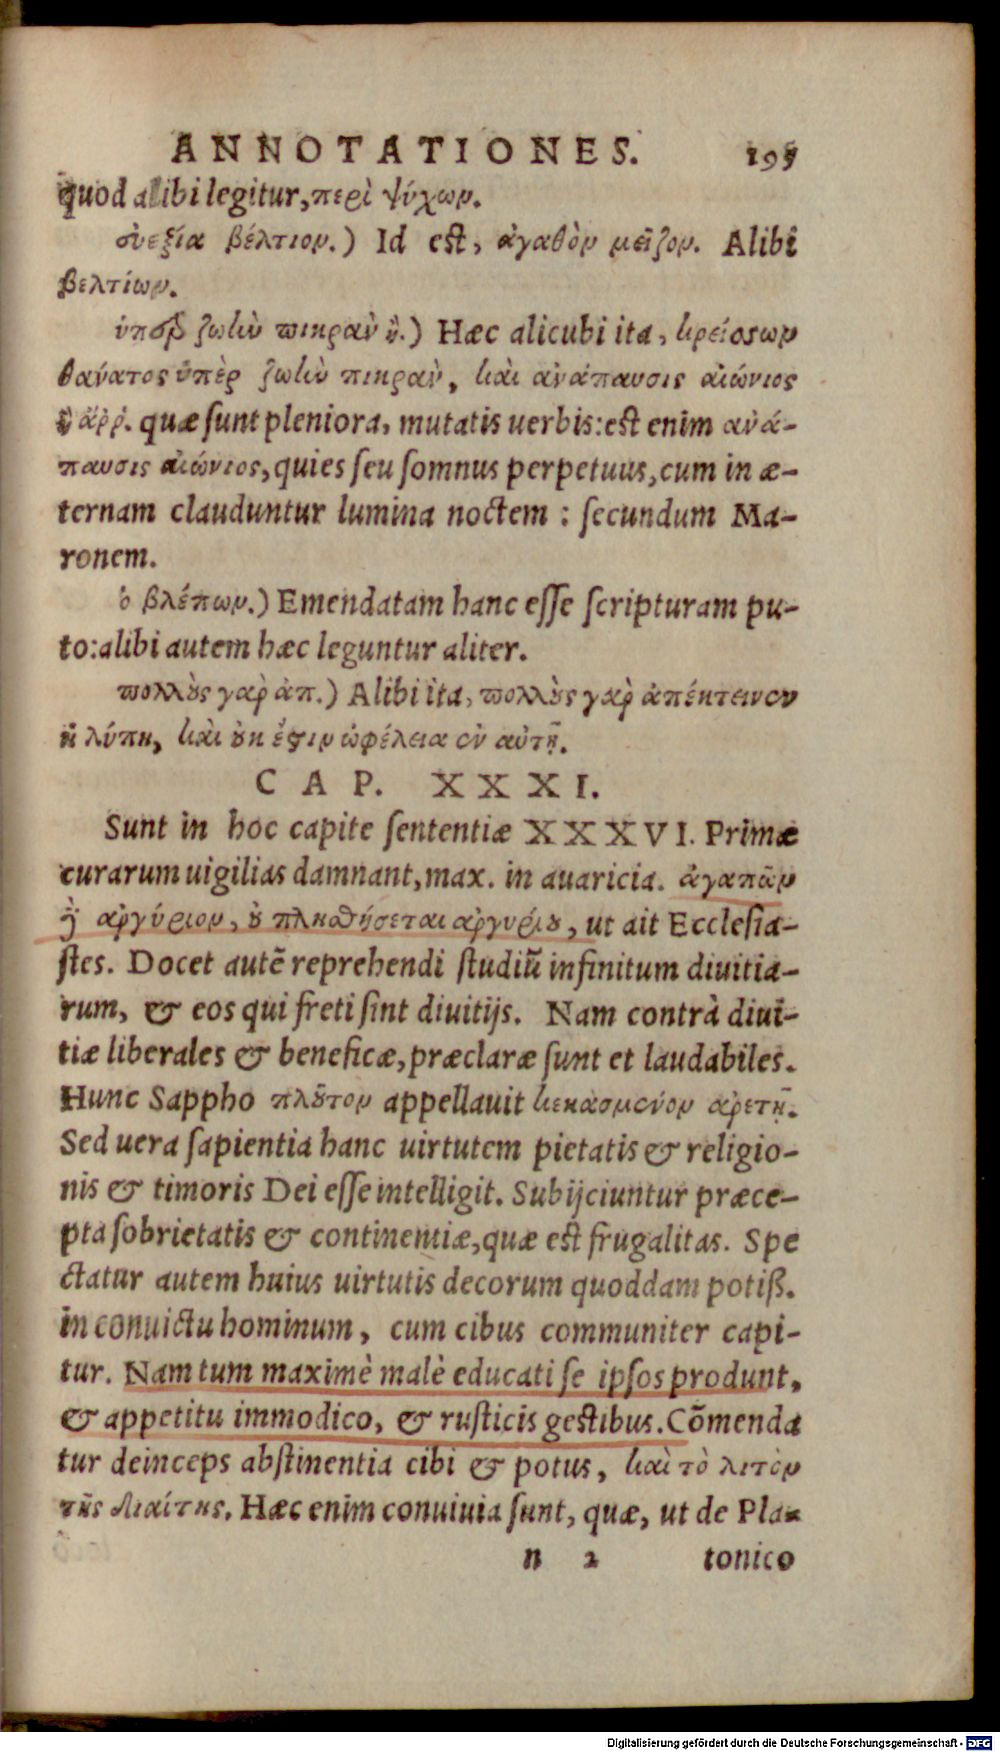 ANNOTATIONES. 195
quod alibi legitur, περὶ ψύχων.
εὐεξία βέλτιον.) Id est, ἀγαθὸν μεῖζον. Alibi
βελτίων.
ὑπὲρ ζωὴν πικρὰν ἢ.) Hæc alicubi ita, κρείσσων
θάνατος ὑπὲρ ζωὴν πικρὰν, καὶ ἀνάπαυσις αἰώνιος
ἢ ἄῤῥ. quæ sunt pleniora, mutatis uerbis: est enim ἀνά-
παυσις αἰώνιος, quies seu somnus perpetuus, cum in æ-
ternam clauduntur lumina noctem : secundum Ma-
ronem.
ὁ βλέπων.) Emendatam hanc esse scripturam pu-
to: alibi autem hæc leguntur aliter.
πολλοὺς γαρ ἀπ.) Alibi ita, πολλοὺς γαρ ἀπέκτεινεν
ἡ λύπη, καὶ οὐκ ἔστιν ὠφέλεια ἐν αὐτῇ.
CAP. XXXI.
Sunt in hoc capite sententiæ XXXVI. Primæ
curarum uigilias damnant, max. in auaricia. ἀγαπῶν
ἀργύριον, οὐ πλησθήσεται ἀργυρίου, ut ait Ecclesia-
stes. Docet autẽ reprehendi studiũ infinitum diuitia-
rum, & eos qui freti sint diuitijs. Nam contrà diui-
tiæ liberales & beneficæ, præclaræ sunt et laudabiles.
Hunc Sappho πλοῦτον appellauit κεκασμένον ἀρετῇ.
Sed uera sapientia hanc uirtutem pietatis & religio-
nis & timoris Dei esse intelligit. Subijciuntur præce-
pta sobrietatis & continentiæ, quæ est frugalitas. Spe
ctatur autem huius uirtutis decorum quoddam potiß.
in conuictu hominum, cum cibus communiter capi-
tur. Nam tum maximè malè educati se ipsos produnt,
& appetitu immodico, & rusticis gestibus. Cõmenda
tur deinceps abstinentia cibi & potus, καὶ τὸ λιτὸν
τῆς διαίτης. Hæc enim conuiuia sunt, quæ, ut de Pla-
n 2 tonico
Digitalisierung gefördert durch die Deutsche Forschungsgemeinschaft - DFG